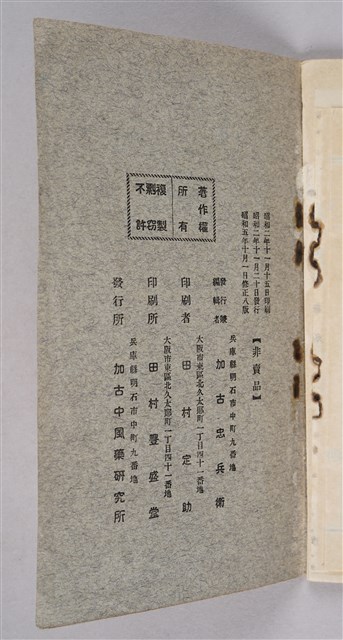 昭和二年十一月十五日印刷
昭和二年十一月二十日發行
昭和五年十月一日修正八版
【非賣品】
兵庫縣明石市中町九番地
發行兼
編輯者
加古忠兵衛
大阪市東區北久太郎町一丁目四十一番地
印刷者 田村定助
大阪市東區北久太郎町一丁目四十一番地
印刷所 田村豐盛堂
兵庫縣明石市中町九番地
發行所 加古中風藥研究所
著作權
所有
複製
剽窃
不許